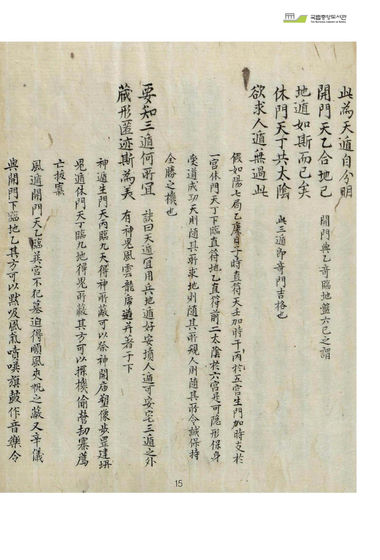 국립중앙도서관
此為天遁自分明
開門天乙合地己　開門與乙奇臨地盤六己之謂
地遁如斯而已矣
休門天丁共太陰　此三遁即奇門吉格也
欲求人遁無過此
假如陽七局乙庚日丁時直符天壬加時干丙於五宮生門加時支於
一宮休門天丁下臨直符地乙直符前二太陰於六宮是可隱形保身
受道成功天則隨其所求地則隨其所親人則隨其所令誠保持
全勝之機也
要知三遁何所宜　訣曰天遁宜用兵地遁好安墳人遁可安宅三遁之外
蔵形匿迹斯為美　有神鬼風雲龍虎遁幷著于下
神遁生門天丙臨九天得神所蔽可以祭神開店塑像步罡建壇
鬼遁休門天丁臨九地得鬼所蔽其方可以探機偷營刼寨薦
亡拔寨
風遁開門天乙臨巽宮不犯墓迫得順風夾帆之蔽又辛儀
與開門下臨地乙其方可以歕吸風氣噴噀旗鼓作音樂令
15